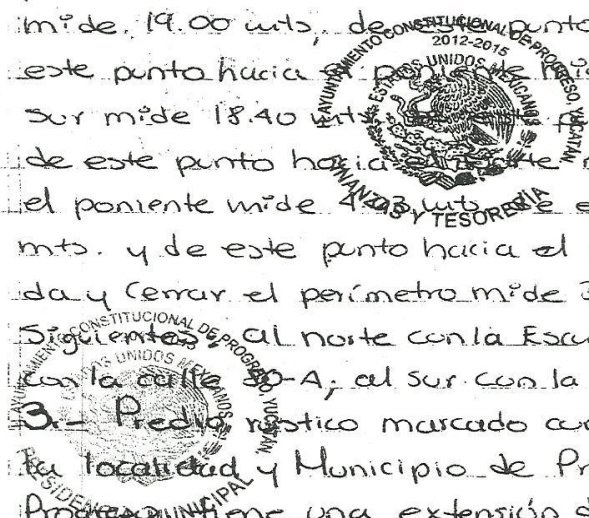 mide. 19.00 mts, de este punto
este punto hacia el poniente
sur mide 18.40 mts
de este punto hacia
el poniente mide mts. de
mts. y de este punto hacia el
da y Cerrar el perímetro mide
Siguientes: al norte con la
con la calle 50-A; al sur con la
3.- Predio rústico marcado
la localidad y Municipio de
Progreso tiene una extensión
H. AYUNTAMIENTO CONSTITUCIONAL DE PROGRESO, YUCATAN
2012-2015
ESTADOS UNIDOS MEXICANOS
FINANZAS Y TESORERÍA
H. AYUNTAMIENTO CONSTITUCIONAL DE PROGRESO, YUCATAN.
ESTADOS UNIDOS MEXICANOS
PRESIDENCIA MUNICIPAL